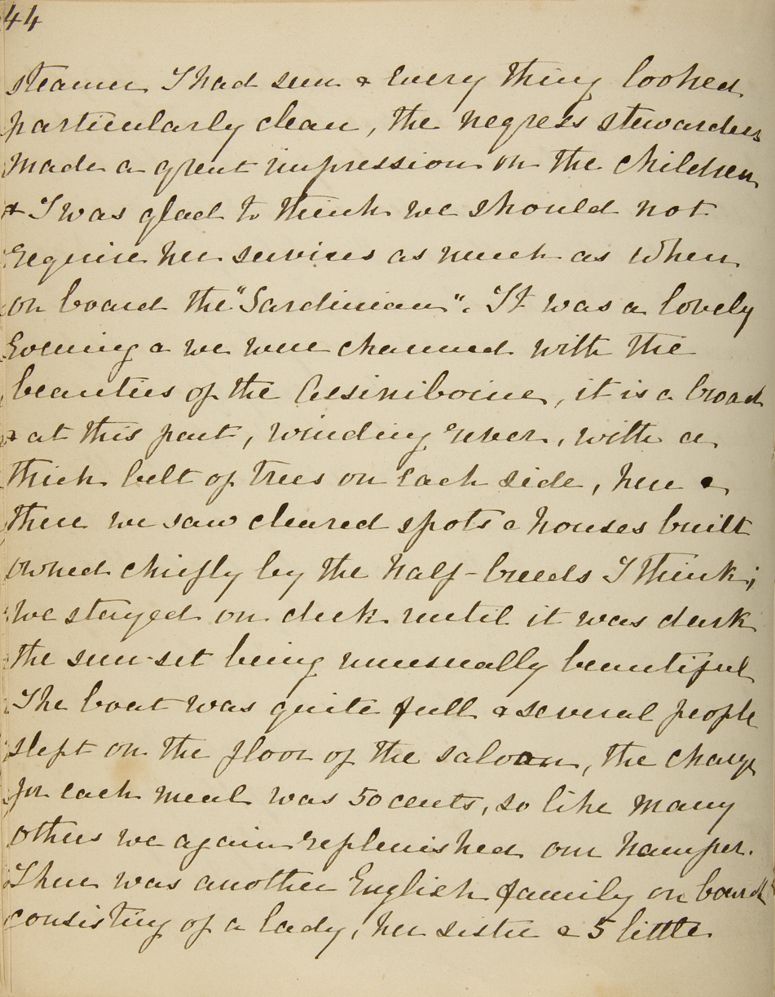 44
steamer I had seen & every thing looked
particularly clean, the negress stewardess
made a great impression on the children
& I was glad to think we should not
require her services as much as when
on board the "Sardinian". It was a lovely
Evening & we were charmed with the
beauties of the Assiniboine, it is a broad
& at this part, winding river, with a
thick belt of trees on each side, here &
there we saw cleared spots & houses built
owned chiefly by the half-breeds I think;
we stayed on deck until it was dark
the sun-set being unusually beautiful
The boat was quite full & several people
slept on the floor of the saloon, the charge
for each meal was 50 cents, so like many
others we again replenished our hamper.
There was another English family on board
consisting of a lady, her sister & 5 little